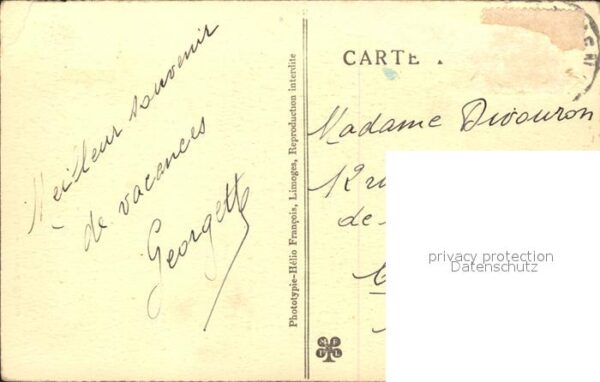 Meilleur souvenir
de vacances
Georgette
Phototypie-Hélio François, Limoges, Reproduction interdite
CARTE
Madame Divouron
12 ru
de
privacy protection
Datenschutz